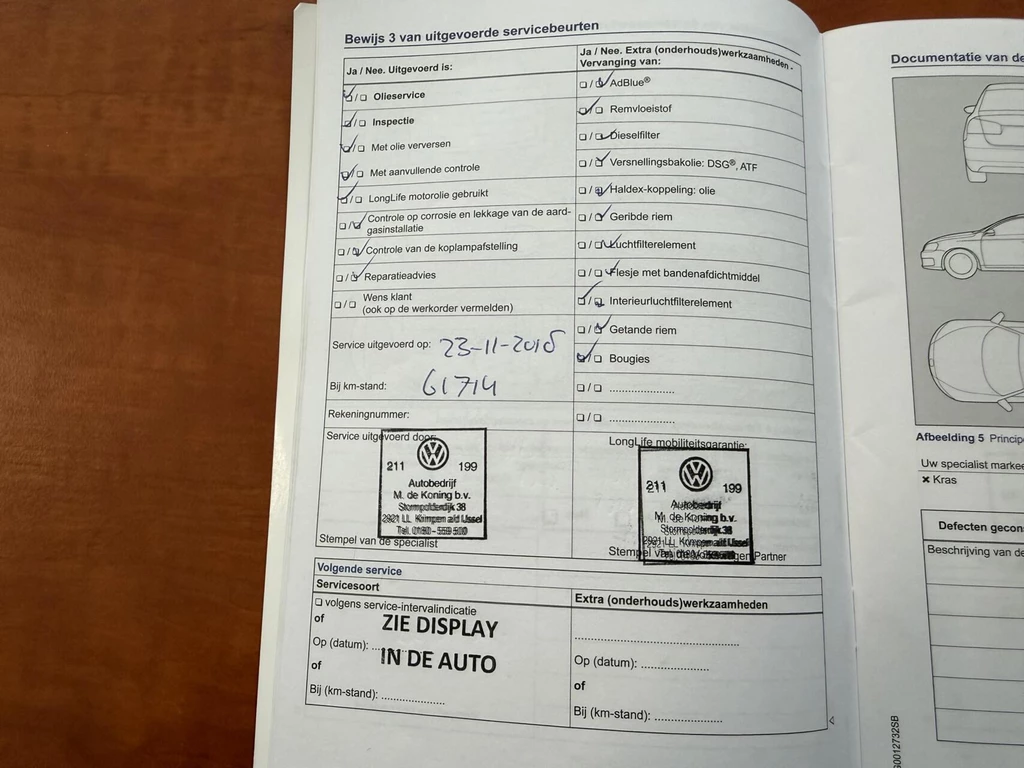 Bewijs 3 van uitgevoerde servicebeurten
Ja / Nee. Uitgevoerd is:
Olieservice
Inspectie
Met olie verversen
Met aanvullende controle
LongLife motorolie gebruikt
Controle op corrosie en lekkage van de aard-
gasinstallatie
Controle van de koplampafstelling
Reparatieadvies
Wens klant
(ook op de werkorder vermelden)
Service uitgevoerd op: 23-11-2018
Bij km-stand: 61714
Rekeningnummer:
Service uitgevoerd door:
211 199
Autobedrijf
M. de Koning b.v.
Stormpolderdijk 38
2921 LL Krimpen a/d IJssel
Tel. 0180 - 559 500
Stempel van de specialist
Ja / Nee. Extra (onderhouds)werkzaamheden -
Vervanging van:
AdBlue®
Remvloeistof
Dieselfilter
Versnellingsbakolie: DSG®, ATF
Haldex-koppeling: olie
Geribde riem
Luchtfilterelement
Flesje met bandenafdichtmiddel
Interieurluchtfilterelement
Getande riem
Bougies
LongLife mobiliteitsgarantie:
211 199
Autobedrijf
M. de Koning b.v.
Stormpolderdijk 38
2921 LL Krimpen a/d IJssel
Stempel van de Volkswagen Partner
Volgende service
Servicesoort
volgens service-intervalindicatie
of
ZIE DISPLAY
Op (datum):
IN DE AUTO
of
Bij (km-stand):
Extra (onderhouds)werkzaamheden
Op (datum):
of
Bij (km-stand):
Documentatie van de
Afbeelding 5 Principe
Uw specialist markee
× Kras
Defecten gecon
Beschrijving van de